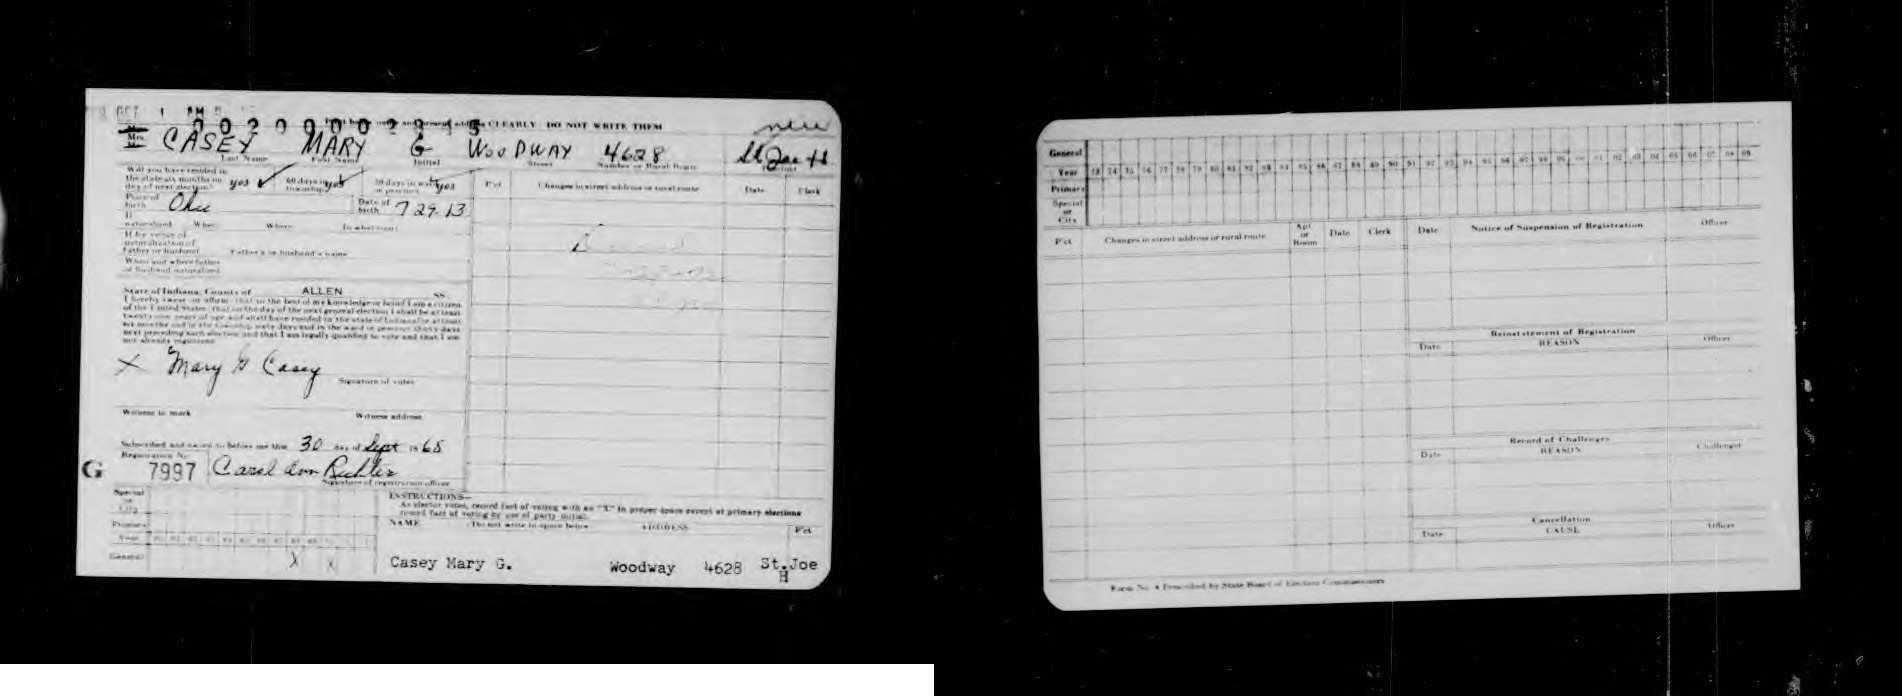 OCT 1 AM
00209002815
CLEARLY DO NOT WRITE THEM
new
Mrs.
CASEY MARY G WOODWAY 4628 St Joe H
Last Name First Name Initial Street Number or Rural Route Precinct
Will you have resided in
the state six months on
day of next election? yes 60 days in township yes 30 days in ward or precinct yes
P'ct Changes in street address or rural route Date Clerk
Place of birth Ohio Date of birth 7 29-13
If naturalized When Where In what court
If by virtue of
naturalization of
father or husband Father's or husband's name
When and where father
or husband naturalized
State of Indiana, County of ALLEN SS.
I hereby swear or affirm that to the best of my knowledge or belief I am a citizen
of the United States; that on the day of the next general election I shall be at least
twenty-one years of age and shall have resided in the state of Indiana for at least
six months and in the township sixty days and in the ward or precinct thirty days
next preceding such election and that I am legally qualified to vote and that I am
not already registered.
X Mary G Casey
Signature of voter
Witness to mark Witness address
Subscribed and sworn to before me this 30 day of Sept 1968
Registration No.
G 7997 Carol Ann Richter
Signature of registration officer
Special
or
City
Primary
Year
General X X
INSTRUCTIONS—
As elector votes, record fact of voting with an "X" in proper space except at primary elections
record fact of voting by use of party initial.
NAME (Do not write in space below) ADDRESS P'ct
Casey Mary G. Woodway 4628 St.Joe
H
General
Year 73 74 75 76 77 78 79 80 81 82 83 84 85 86 87 88 89 90 91 92 93 94 95 96 97 98 99 00 01 02 03 04 05 06 07 08 09
Primary
Special
or
City
P'ct Changes in street address or rural route Apt. or Room Date Clerk
Date Notice of Suspension of Registration Officer
Reinstatement of Registration
Date REASON Officer
Record of Challenges
Date REASON Challenger
Cancellation
Date CAUSE Officer
Form No. 4 Prescribed by State Board of Election Commissioners